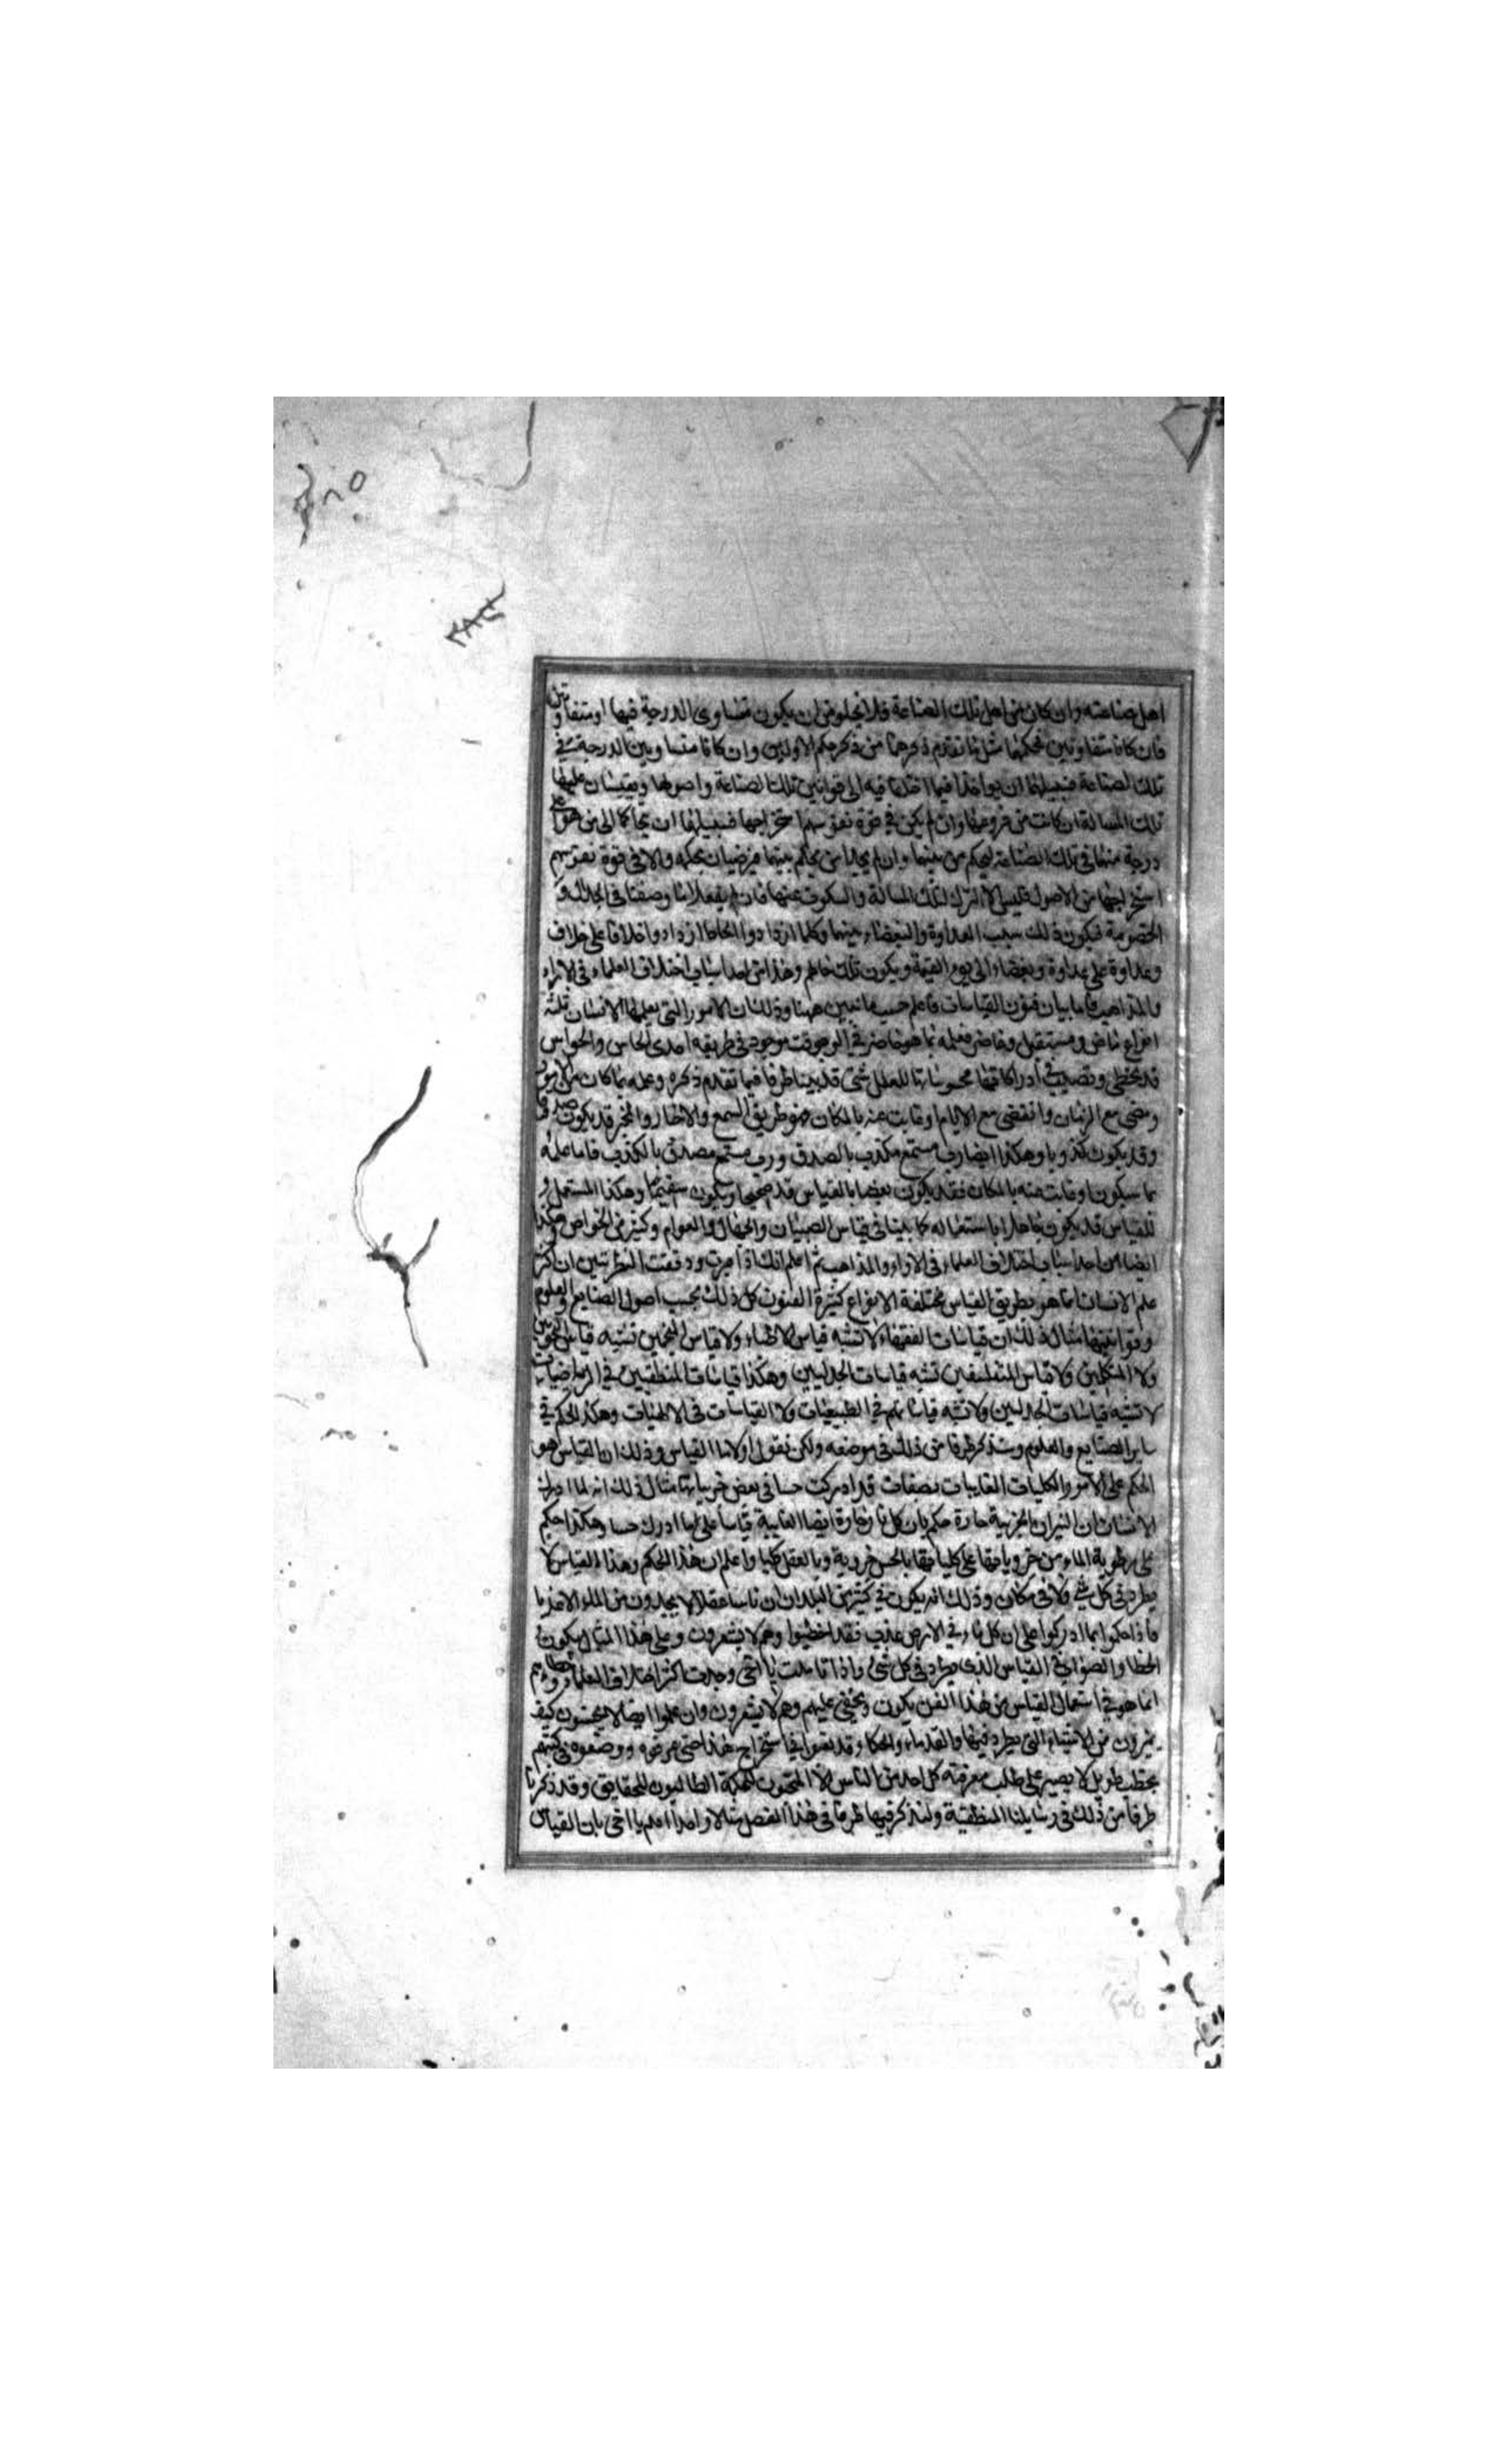 اهل صناعته وان كان من اهل تلك الصناعة فلا يخلو من ان يكون متساوى الدرجة فيها او متفاوتين
فان كانا متفاوتين فحكمهما مثل ما تقدم ذكرهما من ذكر حكم الاولين وان كانا متساويين الدرجة في
تلك الصناعة فسبيلهما ان يواخذا فيما اختلفا فيه الى قوانين تلك الصناعة واصولها ويقيسان عليها
تلك المسالة ان كانت من فروعها وان لم يكن في قوة نفوسهم استخراجها فسبيلهما ان يحاكما الى من هو اعلى
درجة منهما فى تلك الصناعة ليحكم بينهما وان لم يجدا من يحكم بينهما فيرضيان بحكمه والا فى قوة نفوسهم
استخراجها من الاصول فليس الا الترك لتلك المسالة والسكوت عنها فان لم يفعلا ما وصفنا فى الجدل و
الخصومة فيكون ذلك سبب العداوة والبغضاء بينهما وكلما ازدادوا الحاطا ازدادوا خلافا على خلاف
وعداوة على عداوة وبغضاء الى يوم القيمة ويكون تلك حالهم وهذا من احد اسباب اختلاف العلماء فى الاراء
والمذاهب فاما بيان فنون القياسات فاعلم حسب ما نبين ههنا وذلك ان الامور التى يعلمها الانسان ثلثة
انواع ماض ومستقبل وحاضر فعلمه بما هو حاضر في الوقت موجود فى طريقه احدى الحاس والحواس
قد يخطى وتصيب في ادراكاتها محسوساتها للعلل شتى قد بينا طرفا فيما تقدم ذكره وعلمه بما كان من الامور
ومضى مع الزمان وانقضى مع الايام او غابت عنه بالمكان فهو طريق السمع والاخبار والمخبر قد يكون صدوقا
وقد يكون كذوبا وهكذا ايضا رب مستمع مكذب بالصدق ورب مستمع مصدق بالكذب فاما علمه
بما سيكون او غابت عنه بالمكان فقد يكون بعضا بالقياس قد صحيحا ويكون سقيما وهكذا المستعمل
للقياس قد يكون جاهلا باستعماله كما بينا فى قياس الصبيان والجهال والعوام وكثير من الخواص وهكذا
ايضا من احد اسباب اختلاف العلماء فى الاراء والمذاهب ثم اعلم انك اذا ودققت النظر تبين ان اكثر
علم الانسان انما هو بطريق القياس مختلفة الانواع كثيرة الفنون كل ذلك بحسب اصول الصنايع والعلوم
وقوانينها مثال ذلك ان قياسات الفقهاء لا تشبه قياس الاطباء ولا قياس المنجمين تشبه قياس النحويين
ولا المتكلمين ولا قياس المتفلسفين تشبه قياسات الجدليين وهكذا قياسات المنطقيين في الرياضيات
لا تشبه قياسات الجدليين ولا تشبه قياساتهم في الطبيعيات ولا القياسات فى الالهيات وهكذا الحكم في
ساير الصنايع والعلوم وسنذكر طرفا من ذلك فى موضعه ولكن نقول اولا ما القياس وذلك ان القياس هو
الحكم على الامور الكليات الغايبات بصفات قد ادركت حسا فى بعض جزياتها مثال ذلك انه لما ادرك
الانسان ان النيران الجزوية حارة حكم بان كل نار وحارة ايضا الغايبة قياسا على ما ادرك حسا وهكذا حكم
على رطوبة الماء من جزوياتها على كلياتها بالحس جزوية وبالعقل كليا واعلم ان هذا الحكم وهذا القياس لا
يطرد فى كل شي ولا فى مكان وذلك انه يكون في كثير من البلدان ناسا عقلا لا يجدون من الماء الا عذبا
فاذا حكموا بما ادركوا على ان كل ماء في الارض عذب فقد اخطيوا وهم لا يشعرون وعلى هذا المثال يكون
الخطا والصواب في القياس الذى يطرد فى كل شى واذا تاملت يا اخى وجدت اكثر اختلاف العلماء وخطايهم
انما هو في استعمال القياس من هذا الفن يكون ويخفى عليهم وهم لا يشعرون وان علموا ايضا لا يحسنون كيف
يميزون من الاشياء التى يطرد فيها والقدماء والحكما وقد تعبوا في استخراج هذا حتى عرفوه ووضعوه فى كتبهم
بخطب طويل لا يصبر على طلب معرفته كل احد من الناس الا المحبون للحكمة الطالبون للحقايق وقد ذكرنا
طرفا من ذلك فى رسايلنا المنطقية ولنذكر فيها طرفا فى هذا الفصل مثالا واحدا اعلم يا اخى بان القياس